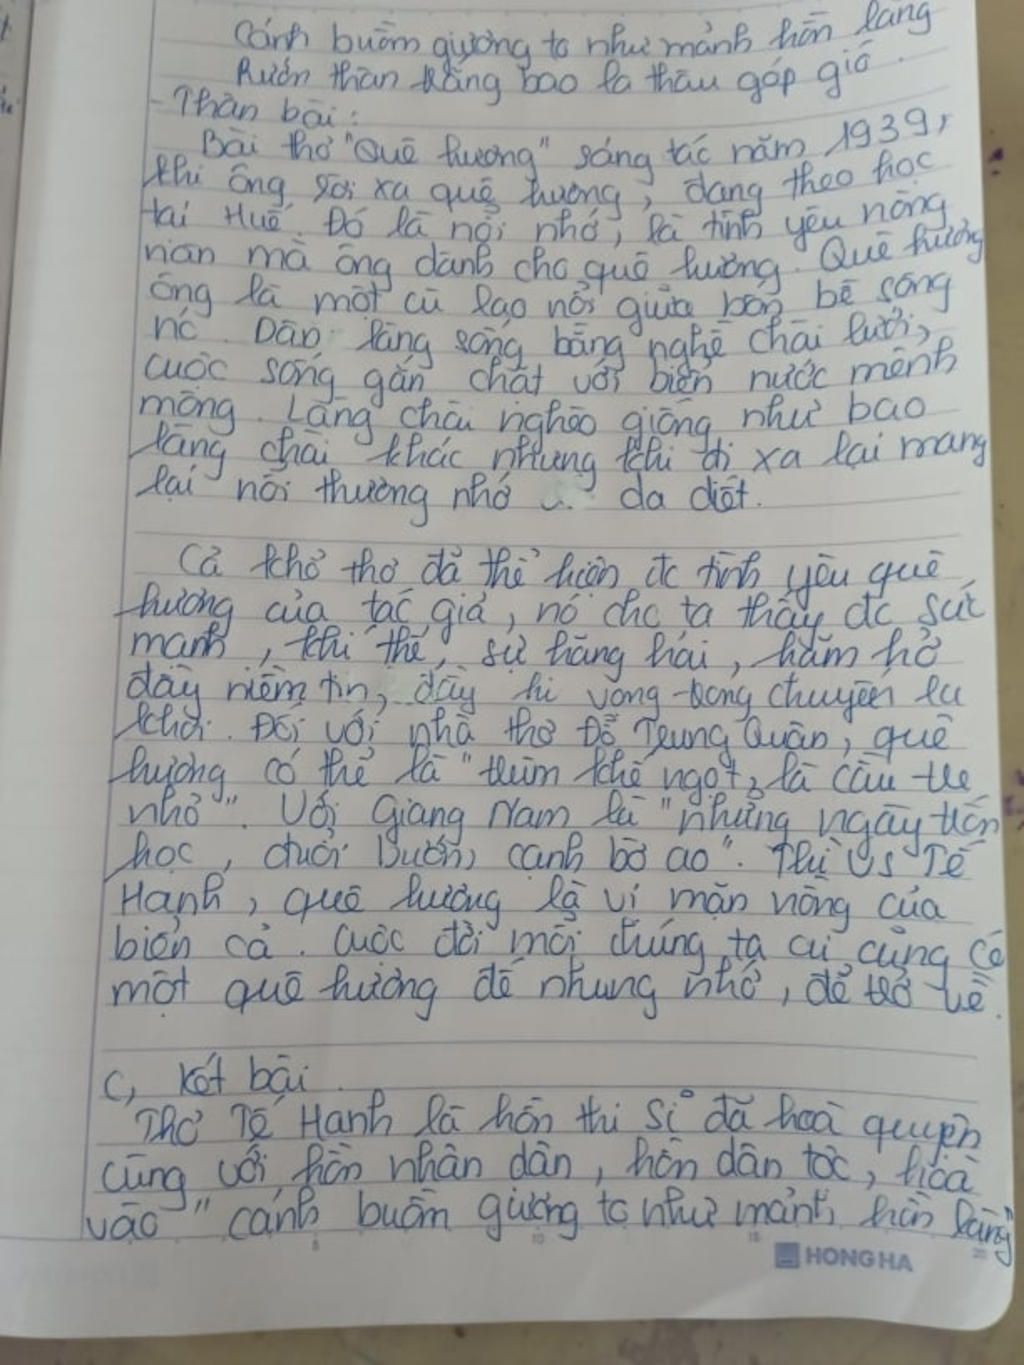 Cánh buồm giương to như mảnh hồn làng
Rướn thân trắng bao la thâu góp gió.
- Thân bài:
Bài thơ "Quê hương" sáng tác năm 1939,
khi ông rời xa quê hương, đang theo học
tại Huế. Đó là nỗi nhớ, là tình yêu nồng
nàn mà ông dành cho quê hương. Quê hương
ông là một cù lao nổi giữa bốn bề sông
nc. Dân làng sống bằng nghề chài lưới,
cuộc sống gắn chặt với biển nước mênh
mông. Làng chài nghèo giống như bao
làng chài khác nhưng khi đi xa lại mang
lại nỗi thương nhớ da diết.
Cả khổ thơ đã thể hiện đc tình yêu quê
hương của tác giả, nó cho ta thấy đc sức
mạnh, khí thế, sự hăng hái, hăm hở
đầy niềm tin, đầy hi vọng trong chuyến ra
khơi. Đối với nhà thơ Đỗ Trung Quân, quê
hương có thể là "chùm khế ngọt, là cầu tre
nhỏ". Với Giang Nam là "những ngày trốn
học, đuổi bướm cạnh bờ ao". Thì vs Tế
Hanh, quê hương là vị mặn nồng của
biển cả. Cuộc đời mỗi chúng ta ai cũng có
một quê hương để nhung nhớ, để trở về.
c, Kết bài.
Thơ Tế Hanh là hồn thi sĩ đã hoà quyện
cùng với hồn nhân dân, hồn dân tộc, hoà
vào "cánh buồm giương to như mảnh hồn làng"
HONG HA
5 10 15 20